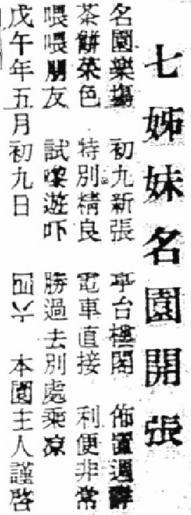 七姊妹名園開張
名園樂塲 初九新張 亭台樓閣 佈置週
茶餅菜色 特別精良 電車直接 利便非常
喂喂朋友 試嚟遊吓 勝過去別處乘凉
戊午年五月初九日 本園主人謹啓